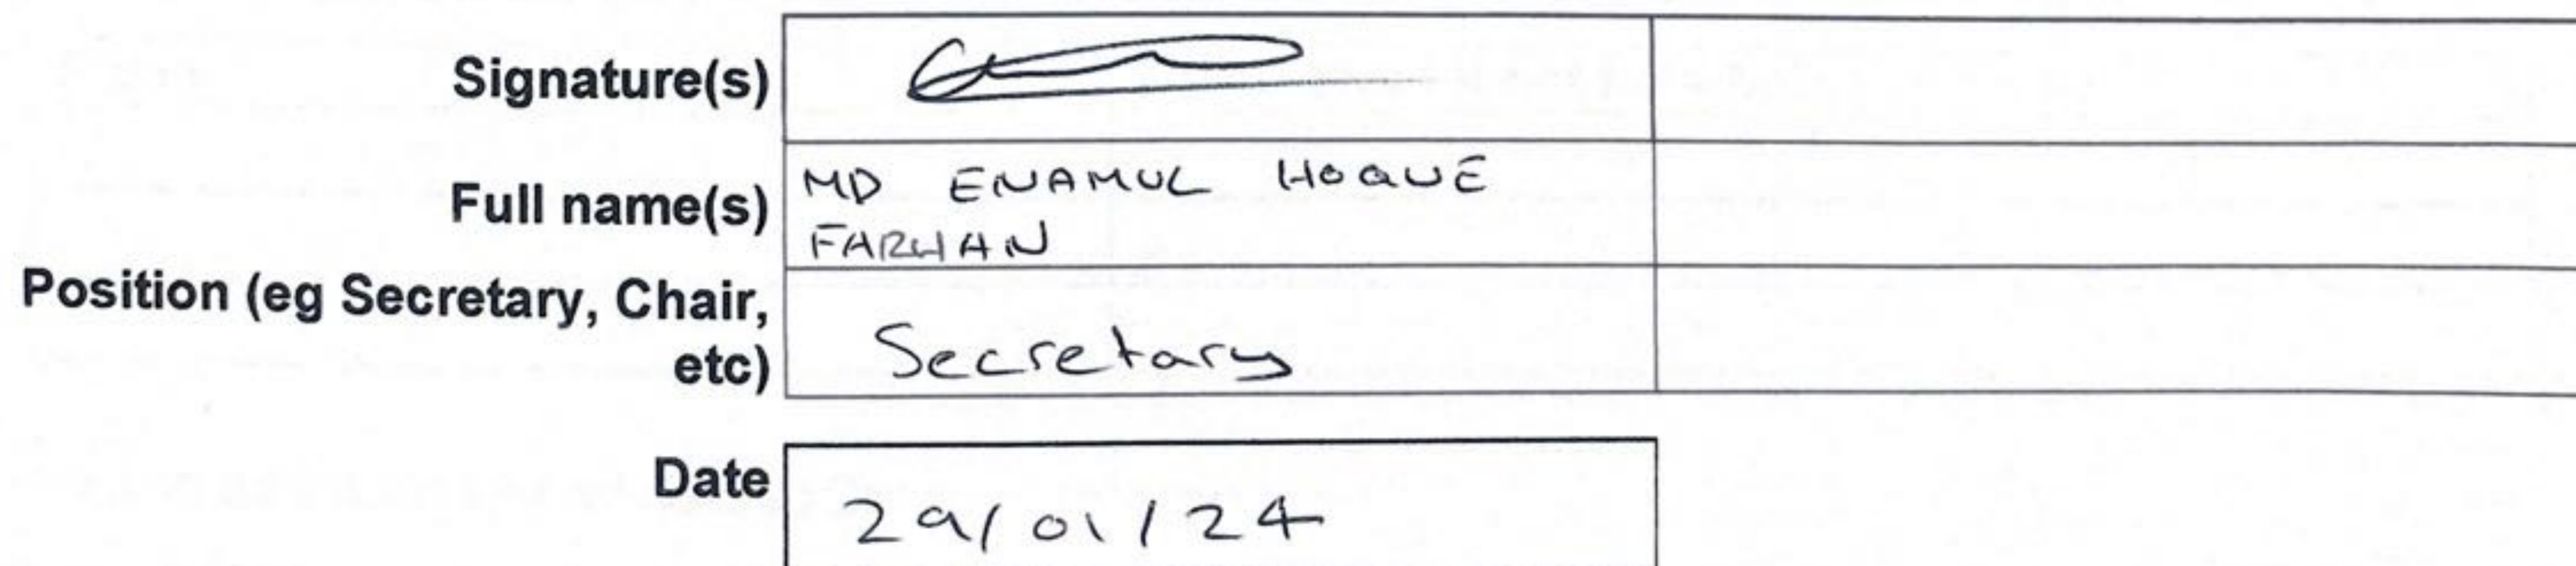 Signature(s)
Full name(s) MD ENAMUL HOQUE
FARHAN
Position (eg Secretary, Chair,
etc) Secretary
Date 29/01/24